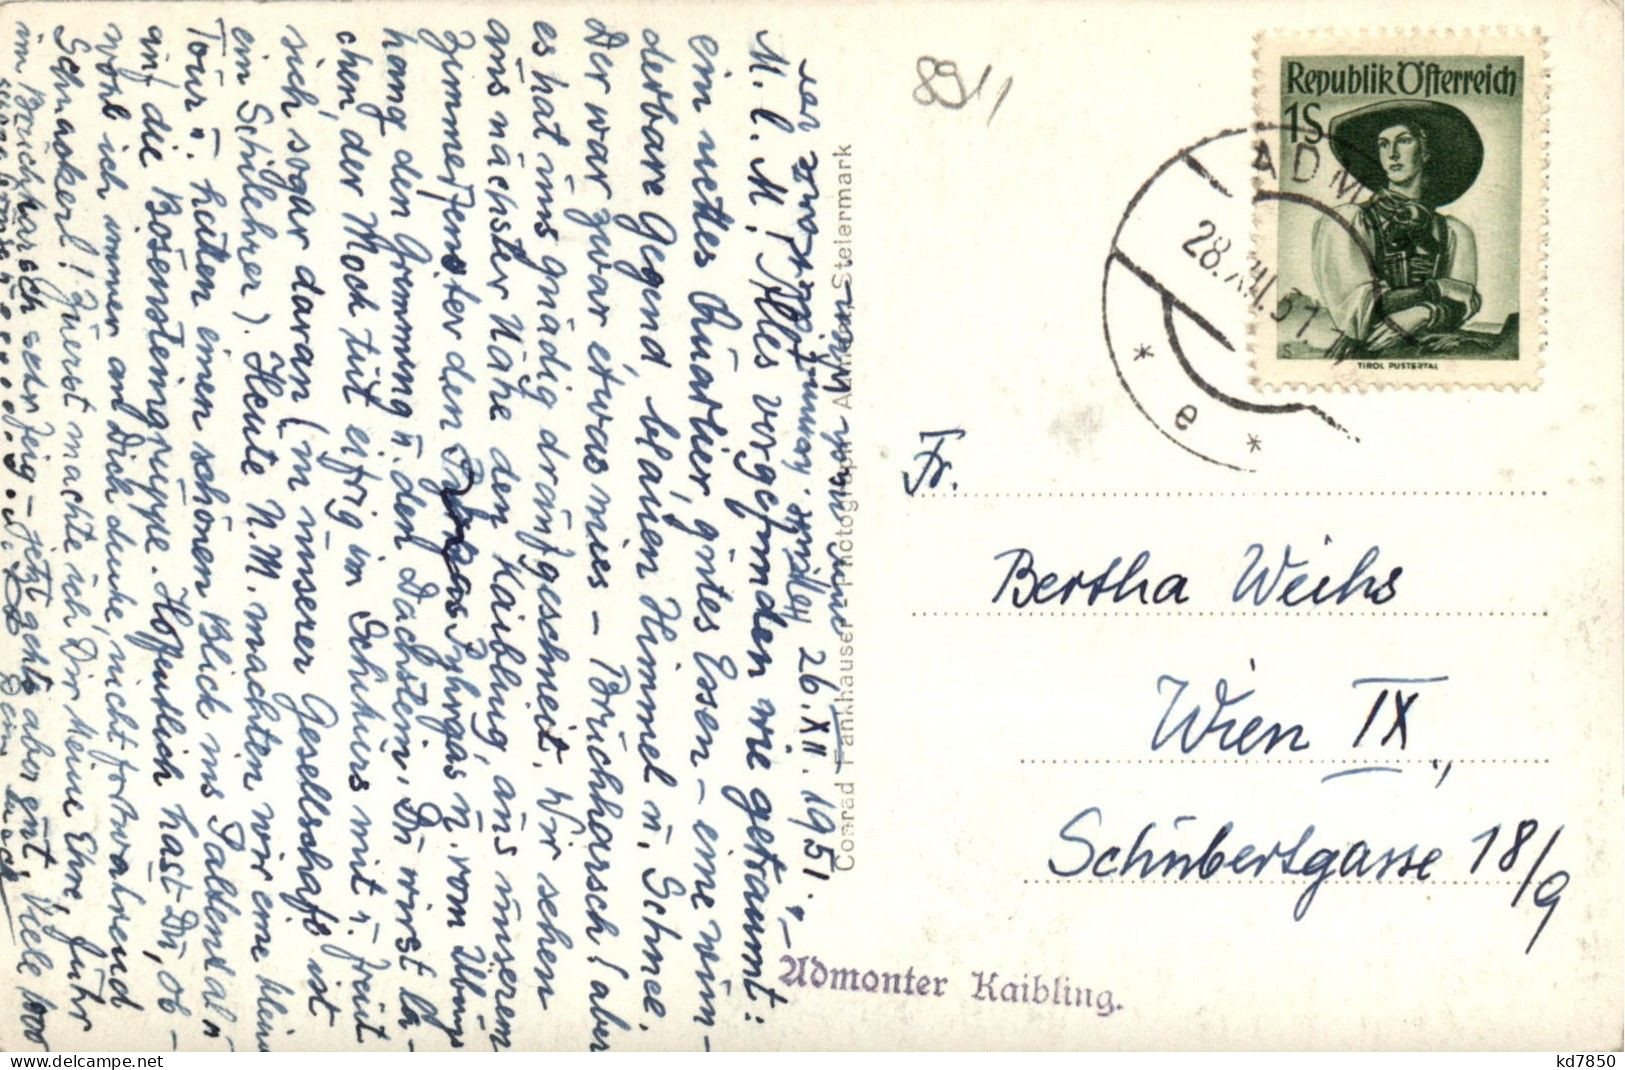 8911
Republik Österreich
1S
TIROL PUSTERTAL
ADMONT
28.XII.51
* e *
Fr.
Bertha Weihs
Wien IX.,
Schubertgasse 18/9
Admonter Kaibling.
Conrad Fankhauser - Photograph - Admont, Steiermark
26.XII.1951.
M. l. M! Alles vorgefunden wie geträumt:
ein nettes Quartier, gutes Essen – eine wun-
derbare Gegend, blauen Himmel u. Schnee.
Der war zwar etwas mies – Bruchharsch! aber
es hat uns gnädig draufgeschneit. Wir sehen
aus nächster Nähe den Kaibling, aus unserem
Zimmerfenster den Pyhrgas u. vom Übungs
hang den Grimming u. den Dachstein. Du wirst la-
chen, der Mock tut eifrig im Schikurs mit u. freut
sich sogar daran (in unserer Gesellschaft ist
ein Schilehrer). Heute N.M. machten wir eine kleine
Tour u. hatten einen schönen Blick ins Paltental u
auf die Bösensteingruppe. Hoffentlich hast Du, ob-
wohl ich immer an Dich denke, nicht fortwährend
Schnackerl! Zuerst machte ich Dir keine Ehre, fuhr
im Bruchharsch sehr feig – jetzt gehts aber gut. Viele 1000